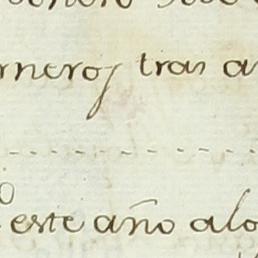 rneros tras a
este año alo